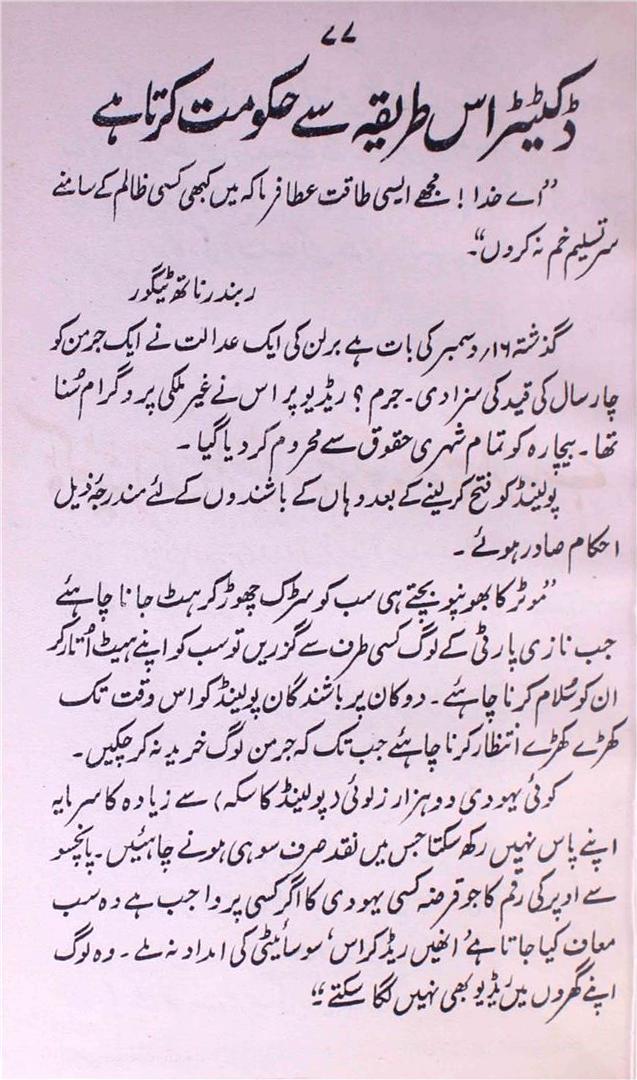 ۷۷
ڈکٹیٹر اس طریقہ سے حکومت کرتا ہے
”اے خدا! مجھے ایسی طاقت عطا فرما کہ میں کبھی کسی ظالم کے سامنے
سر تسلیم خم نہ کروں“۔
ربندر ناتھ ٹیگور
گذشتہ ۱۶؍ دسمبر کی بات ہے برلن کی ایک عدالت نے ایک جرمن کو
چار سال کی قید کی سزا دی۔ جرم؟ ریڈیو پر اس نے غیر ملکی پروگرام سُنا
تھا۔ بیچارہ کو تمام شہری حقوق سے محروم کر دیا گیا۔
پولینڈ کو فتح کر لینے کے بعد وہاں کے باشندوں کے لئے مندرجۂ ذیل
احکام صادر ہوئے۔
”موٹر کا بھونپو بجتے ہی سب کو سڑک چھوڑ کر ہٹ جانا چاہئے
جب نازی پارٹی کے لوگ کسی طرف سے گزریں تو سب کو اپنے ہیٹ اُتار کر
ان کو سلام کرنا چاہئے۔ دوکان پر باشندگان پولینڈ کو اس وقت تک
کھڑے کھڑے انتظار کرنا چاہئے جب تک کہ جرمن لوگ خرید نہ کر چکیں۔
کوئی یہودی دو ہزار زلوئی (پولینڈ کا سکہ) سے زیادہ کا سرمایہ
اپنے پاس نہیں رکھ سکتا جس میں نقد صرف سو ہی ہونے چاہئیں۔ پانچسو
سے اوپر کی رقم کا جو قرضہ کسی یہودی کا اگر کسی پر واجب ہے وہ سب
معاف کیا جاتا ہے، انھیں ’ریڈ کراس‘ سوسائیٹی کی امداد نہ ملے۔ وہ لوگ
اپنے گھروں میں ریڈیو بھی نہیں لگا سکتے۔“